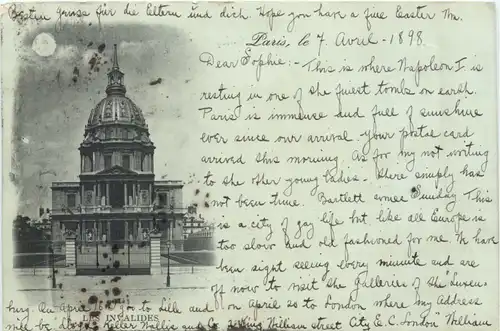 Besten grüsse für die Eltern und dich. Hope you have a fine Easter Mn.
Paris, le 7 Avril - 1898
Dear Sophie:- This is where Napoleon I. is
resting in one of the finest tombs on earth.
Paris is immense and full of sunshine
ever since our arrival - your postal card
arrived this morning. As for my not writing
to the other young ladies - there simply has
not been time. Bartlett comes Sunday. This
is a city of gay life but like all Europe is
too slow and old fashioned for me. We have
been sight seeing every minute and are
off now to visit the galleries of the "Luxem-
burg. On April 16 I go to Lille and on April 20 to London where my address
LES INVALIDES
will be Keller Wallis and Co. King William Street City E.C. London" William